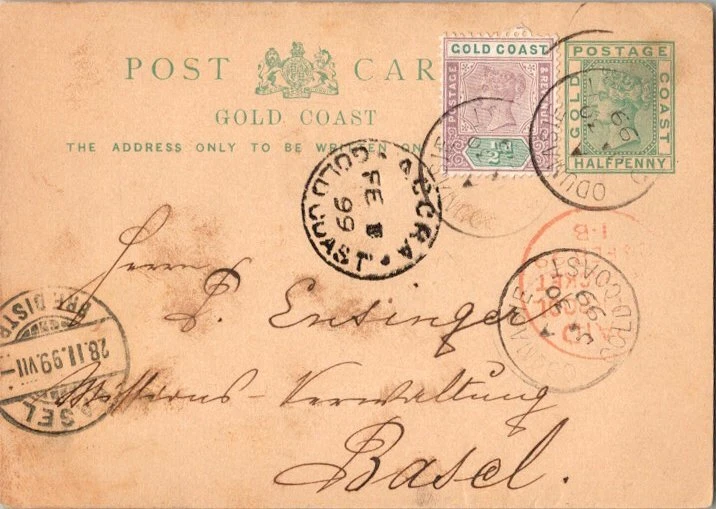 POST CAR
GOLD COAST
THE ADDRESS ONLY TO BE WRITTEN ON
GOLD COAST
POSTAGE
REVENUE
½d
POSTAGE
GOLD
COAST
HALFPENNY
ACCRA
FE
99
GOLD COAST
99
GOLD COAST
99
Herrn
L. Ensinger
Missions-Verwaltung
Basel.
BASEL
28.II.99.VII-
BRF.DISTR